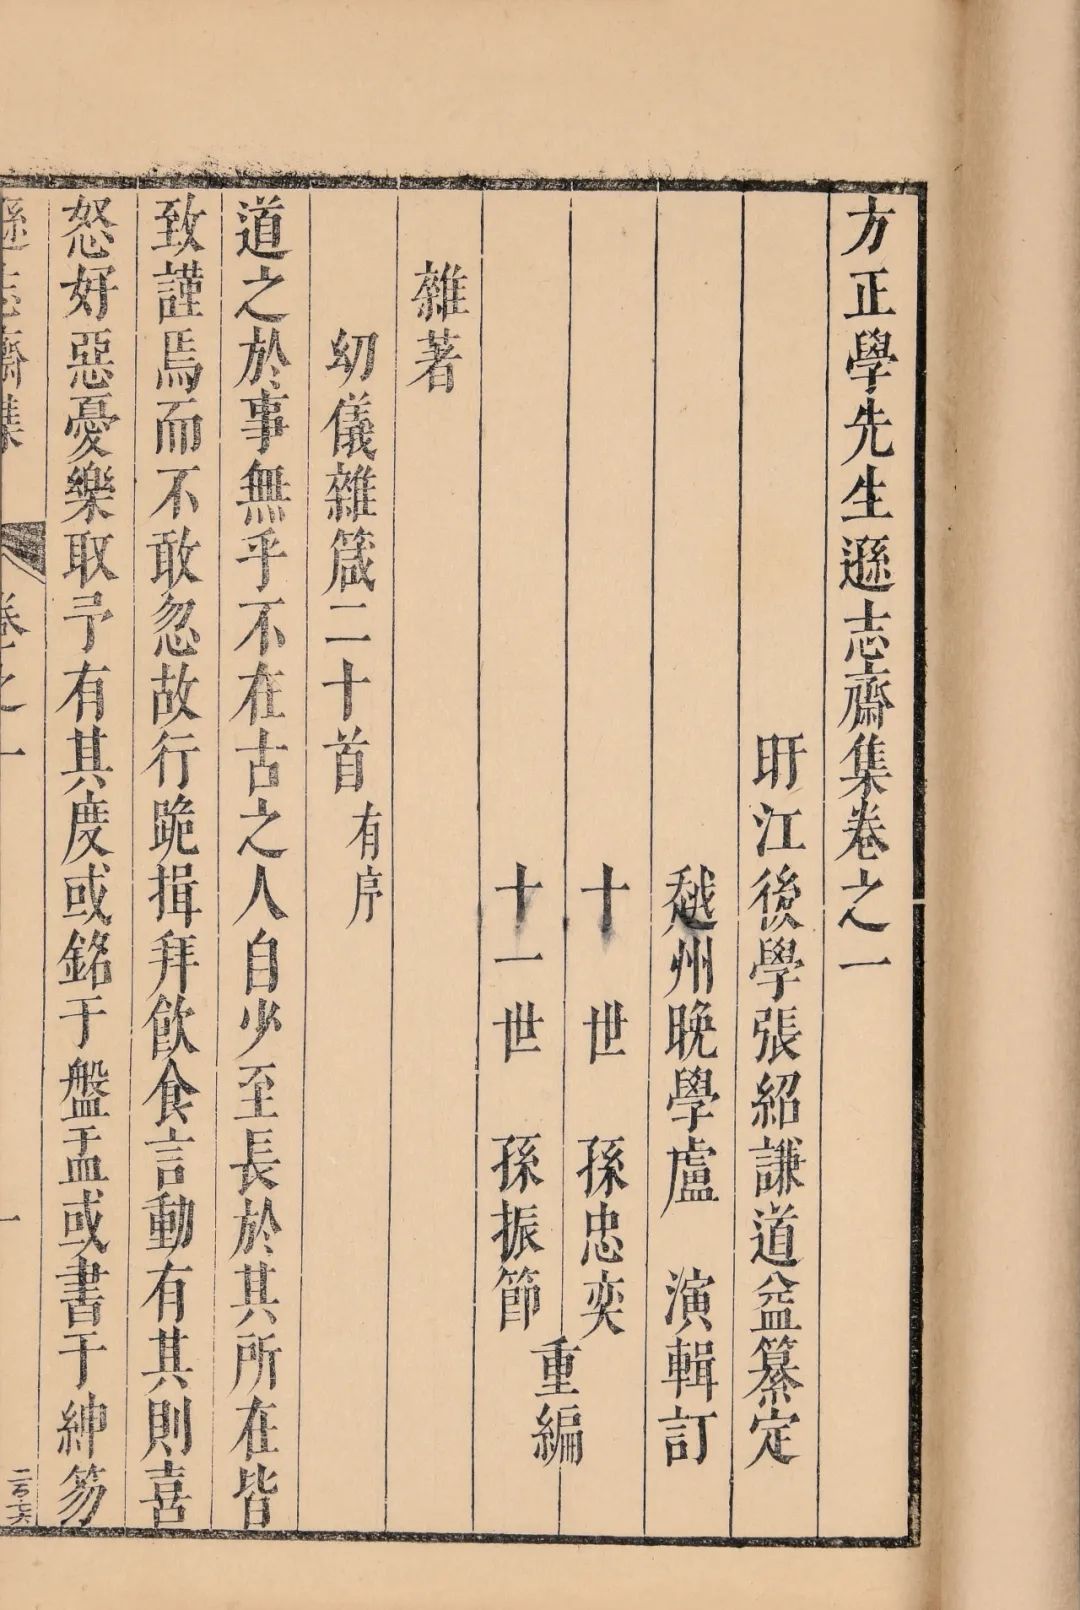 方正學先生遜志齋集卷之一
盱江後學張紹謙道益纂定
越州晚學盧　演輯訂
十　世　孫忠奕
十一世　孫振節
重編
雜著
幼儀雜箴二十首有序
道之於事無乎不在古之人自少至長於其所在皆
致謹焉而不敢忽故行跪揖拜飲食言動有其則喜
怒好惡憂樂取予有其度或銘于盤盂或書于紳笏
遜志齋集
卷之一
一